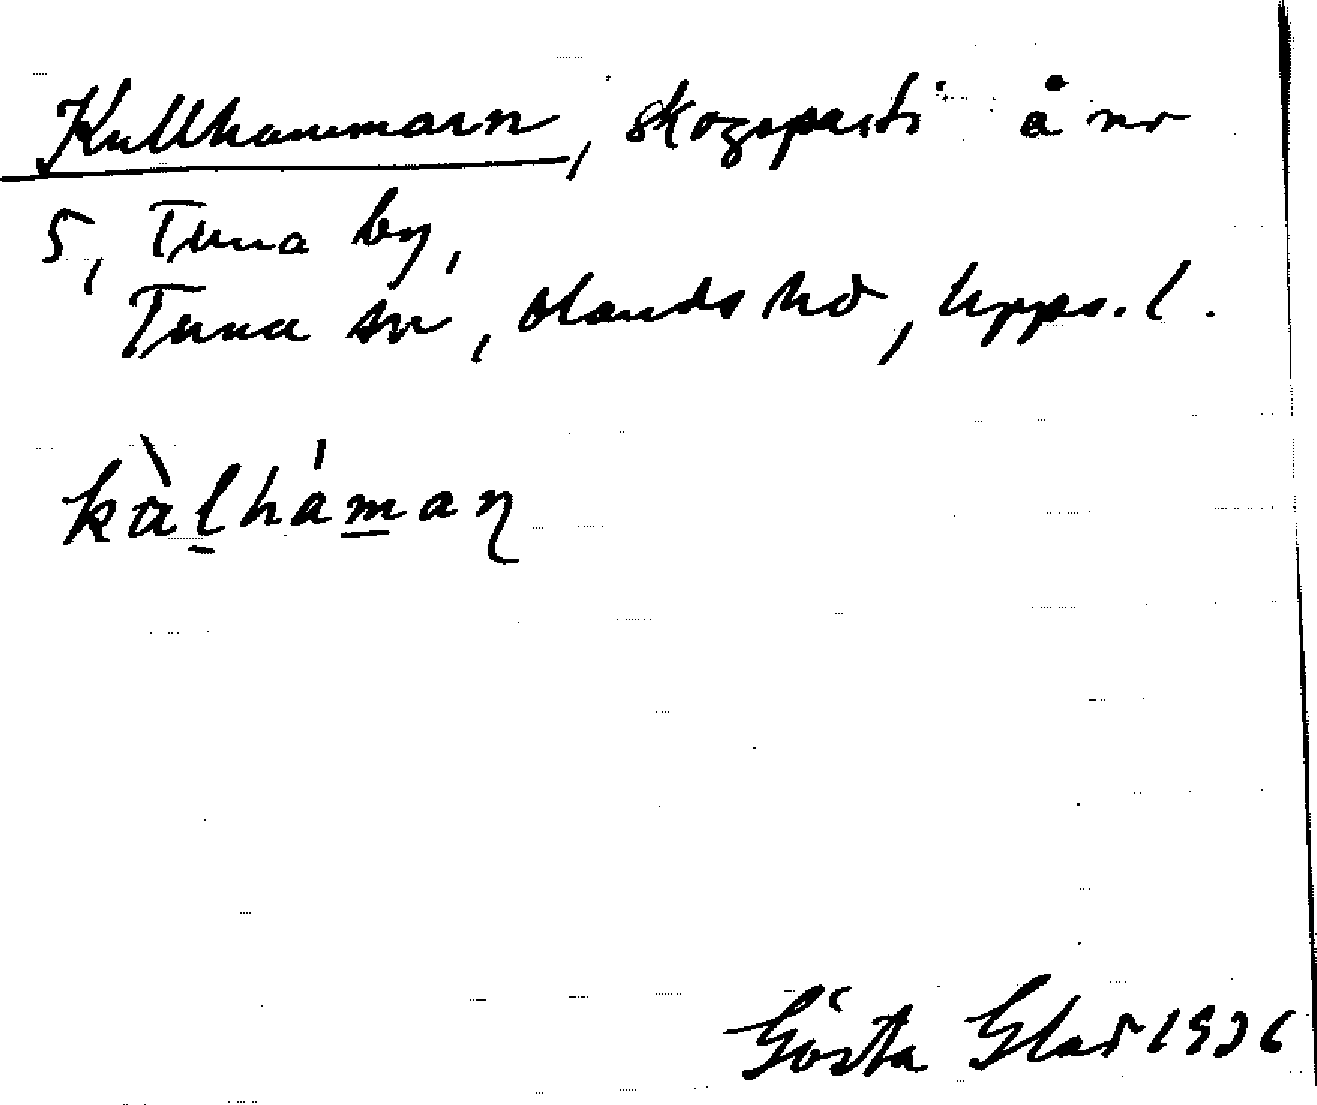 Kullhammarn, skogsparti å nr
5, Tuna by,
Tuna sn, Olands hd, Upps. l.
kàlháman
Gösta Glad 1936